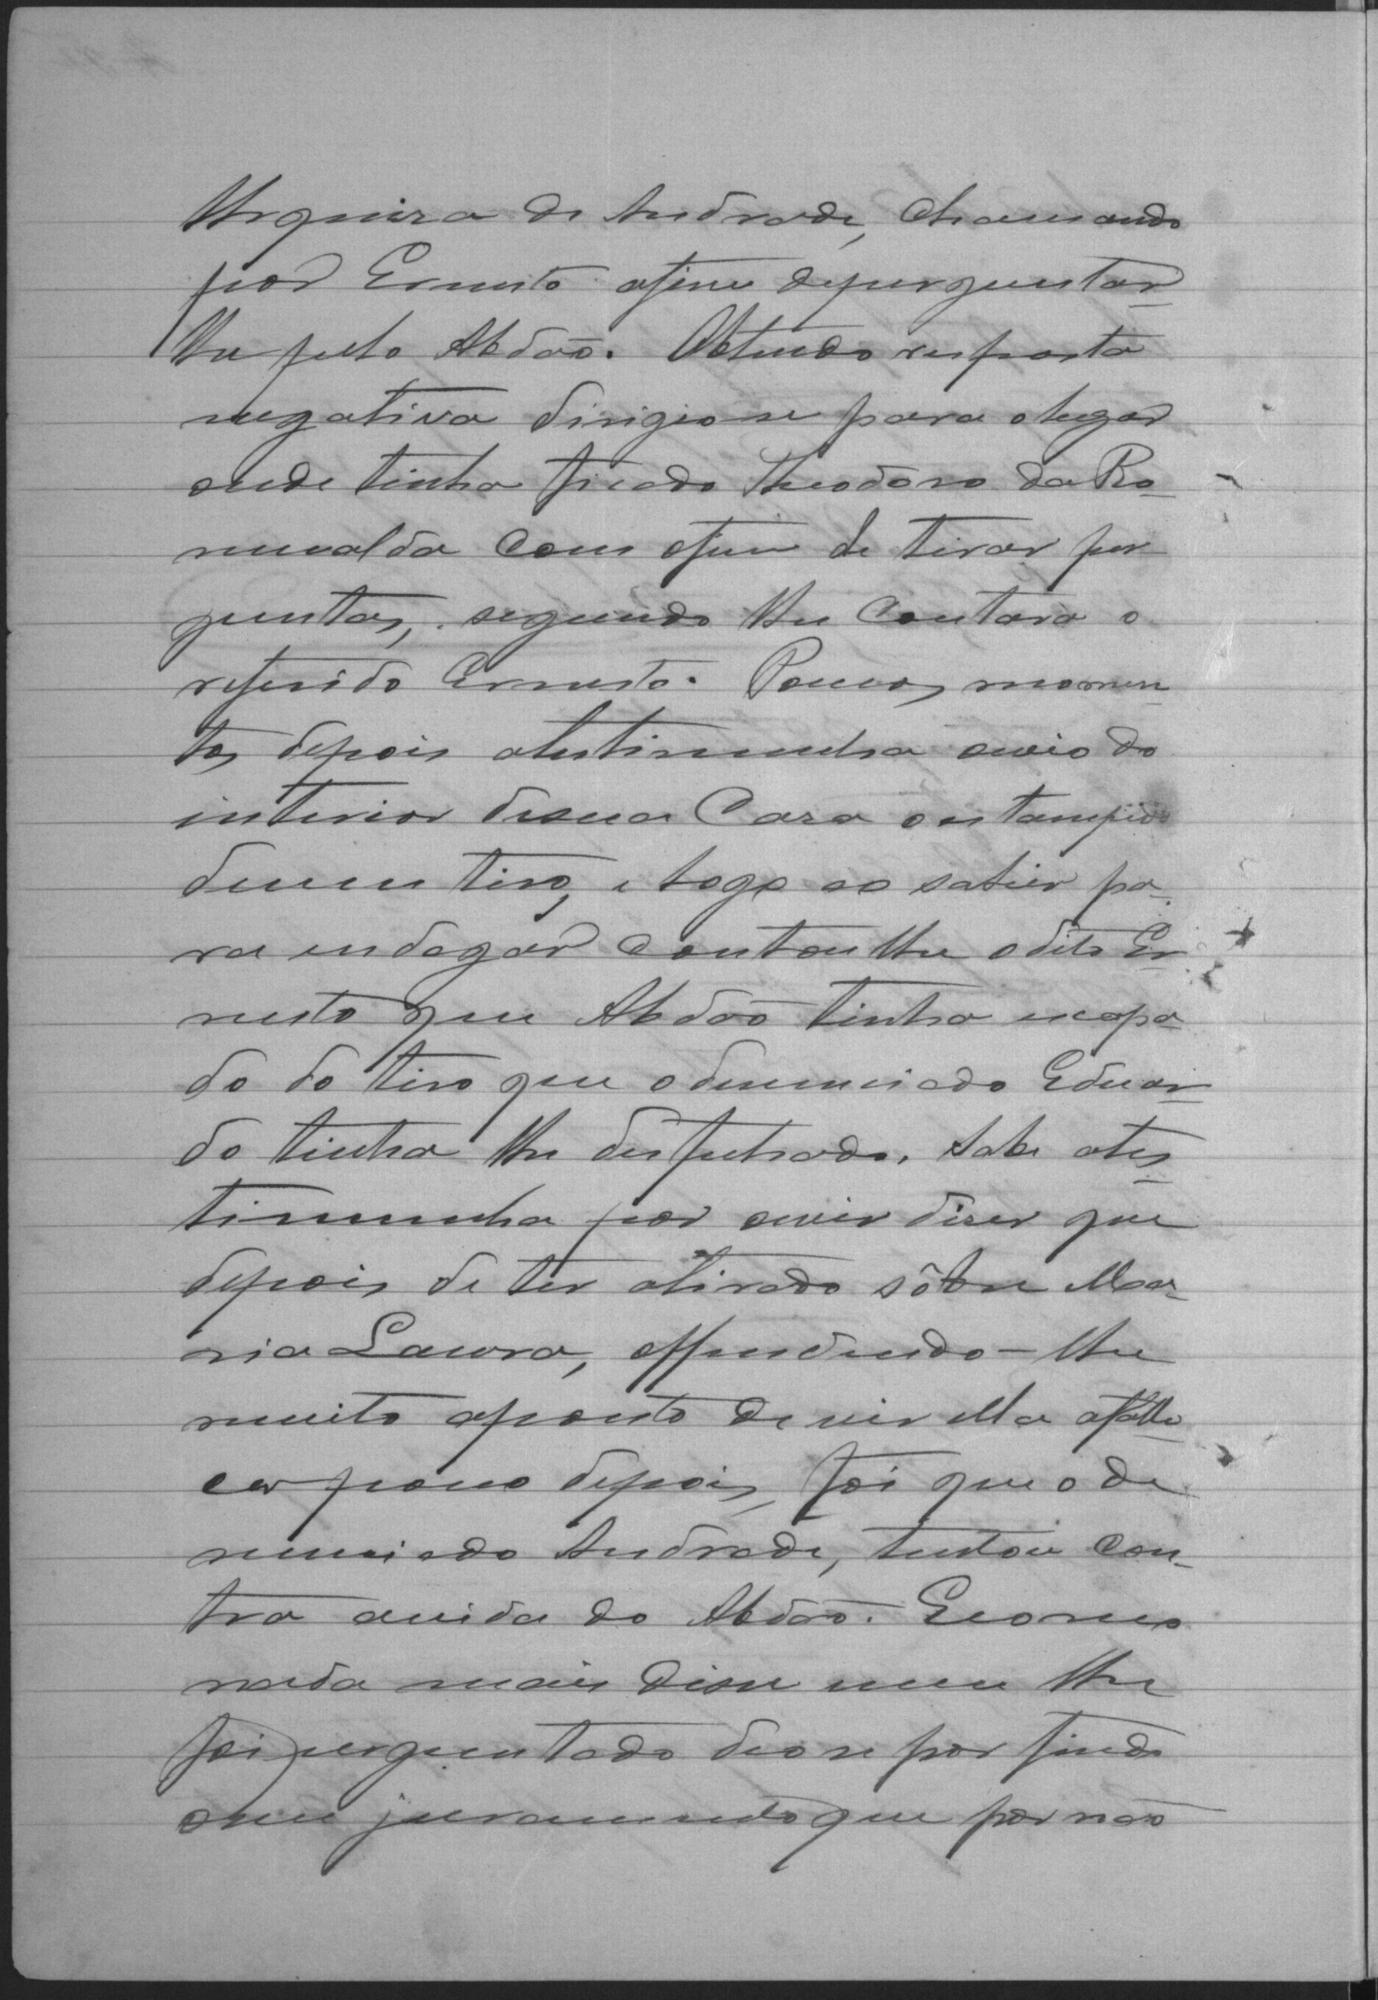 Urquiza de Andrade, chamando
por Ernesto afim deperguntar-
lhe pelo Abdão. Obtendo resposta
negativa dirigiose para olugar
onde tinha ficado Theodoro da Ro-
mualda com ofim de tirar per
guntas, segundo lhe contara o
referido Ernesto. Poucos momen
tos depois atestimunha ouvio do
interior desua casa oestampido
deum tiro, e logo ao sahir pa-
ra indagar contoulhe odito Er
nesto que Abdão tinha escapa-
do do tiro que odenunciado Eduar-
do tinha lhe disfechado. Sabe ates
timunha por ouvir diser que
depois de ter atirado sôbre Ma-
ria Laura, offendendo-lhe
muito aponto de vir ella afalle-
cer pouco depois, foi que o de
nunciado Andrade, tentou con-
tra avida do Abdão. Ecomo
nada mais disse nem lhe
foi perguntado deose por findo
oseu juramento que por não